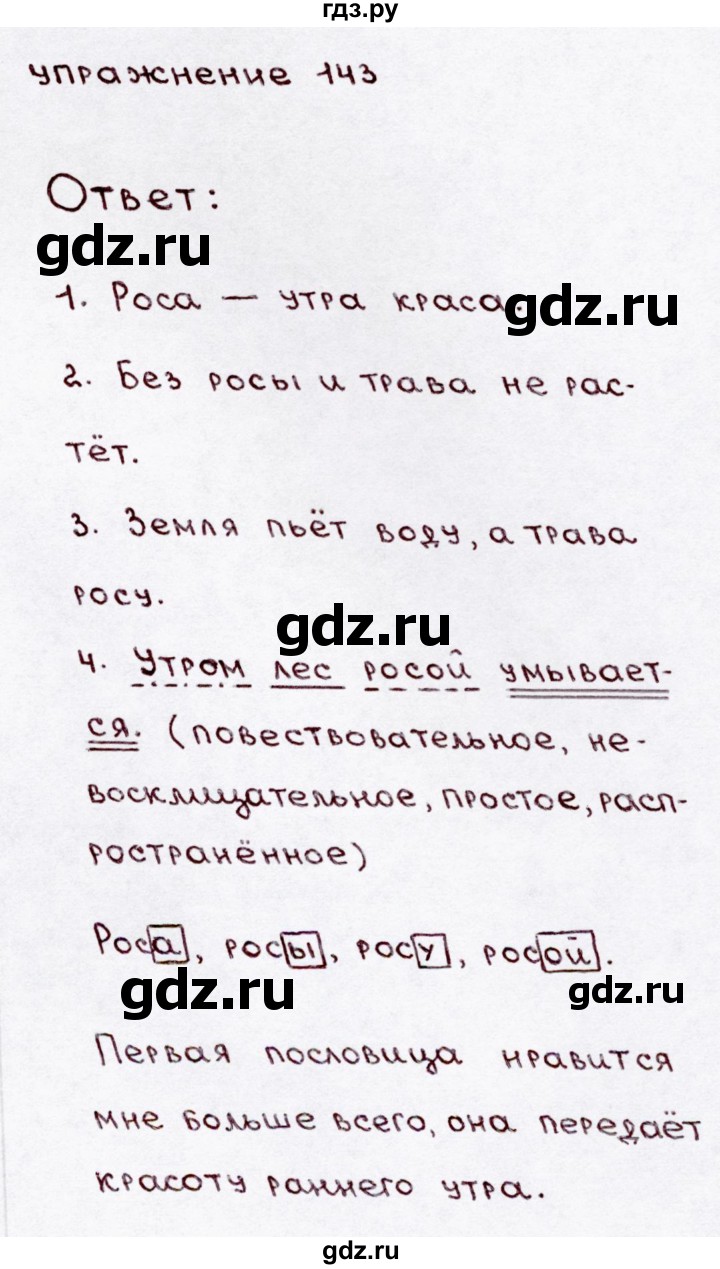 гдз.ру
упражнение 143
Ответ:
gdz.ru
1. Роса — утра краса
gdz.ru
2. Без росы и трава не рас-
тёт.
3. Земля пьёт воду, а трава
росу.
gdz.ru
4. Утром лес росой умывает-
ся. (повествовательное, не-
восклицательное, простое, расп-
ространённое)
Роса, росы, росу, росой.
gdz.ru
gdz.ru
Первая пословица нравится
мне больше всего, она передаёт
красоту раннего утра.
gdz.ru